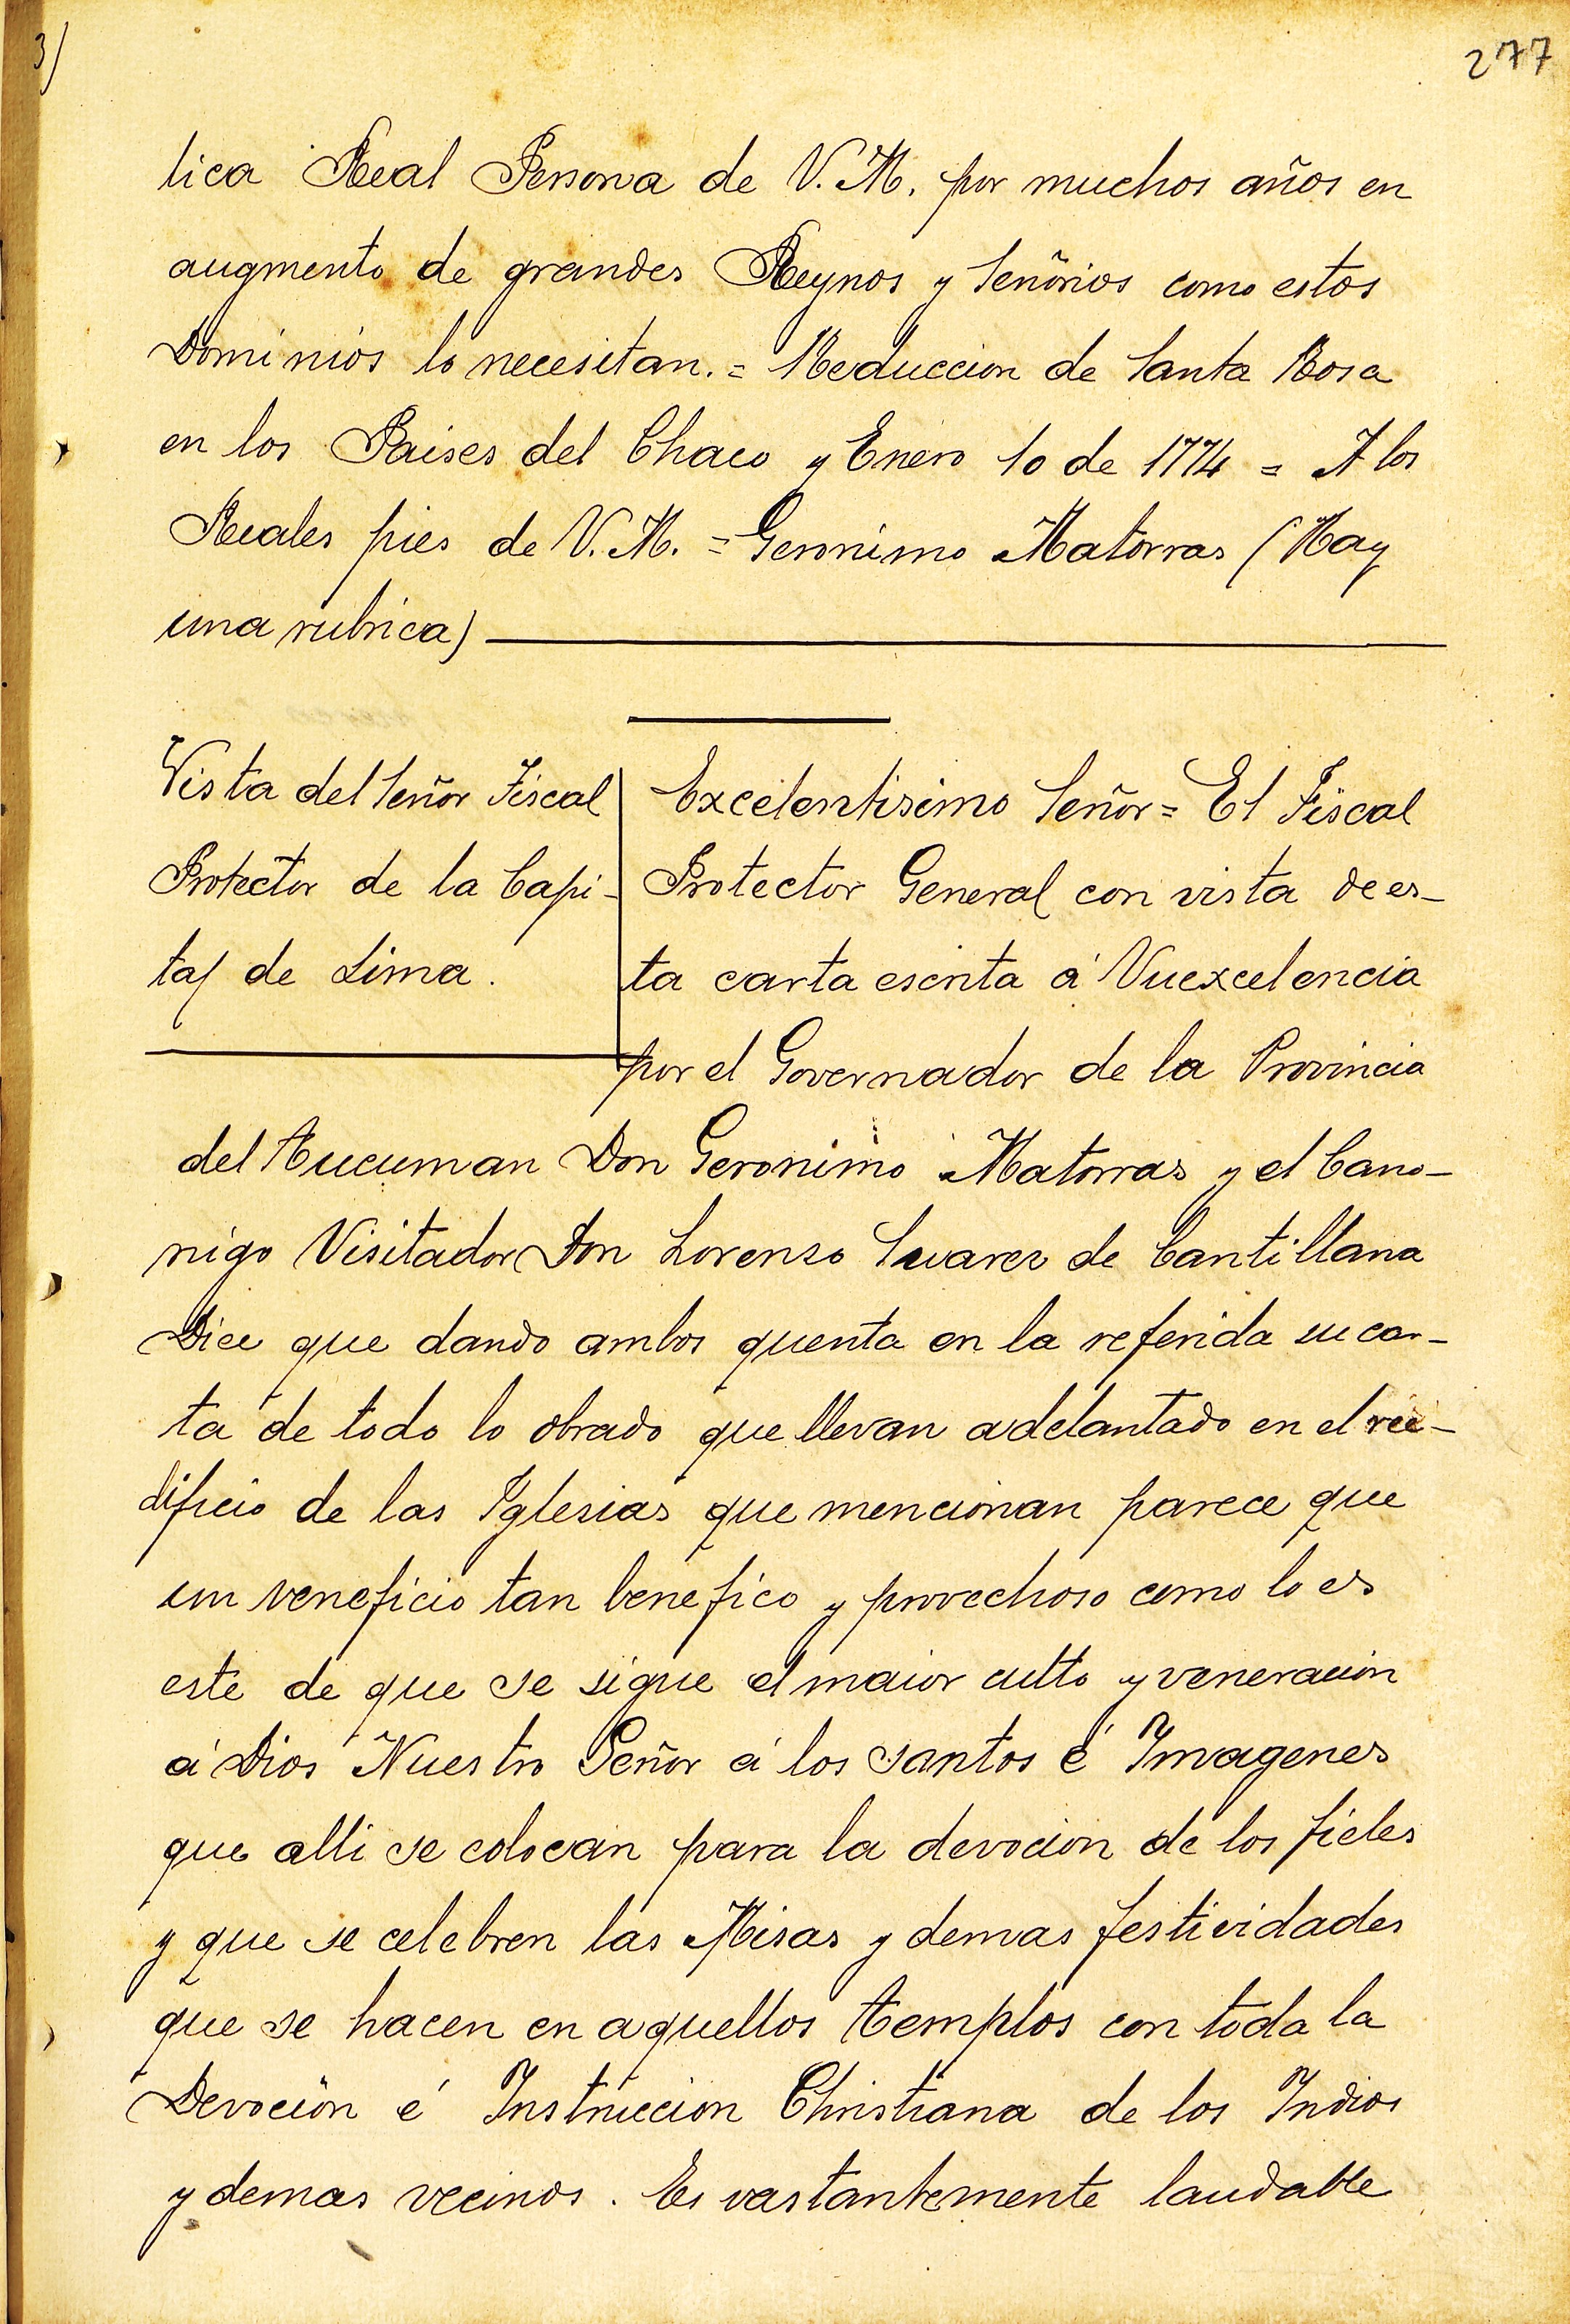 3)
277
lica Real Persona de V. M. por muchos años en
augmento de grandes Reynos y Señorios como estos
Dominios lo necesitan. = Reduccion de Santa Rosa
en los Paises del Chaco y Enero 10 de 1774 = A los
Reales pies de V. M. = Geronimo Matorras (Hay
una rubrica)
Vista del Señor Fiscal
Protector de la Capi-
tal de Lima.
Excelentisimo Señor = El Fiscal
Protector General con vista de es-
ta carta escrita á Vuexcelencia
por el Governador de la Provincia
del Tucuman Don Geronimo Matorras y el Cano-
nigo Visitador Don Lorenzo Suarez de Cantillana
Dice que dando ambos quenta en la referida su car-
ta de todo lo obrado que llevan adelantado en el ree-
dificio de las Yglesias que mencionan parece que
un veneficio tan benefico y provechoso como lo es
este de que se sigue el maior culto y veneracion
á Dios Nuestro Señor á los santos é Ymagenes
que alli se colocan para la devocion de los fieles
y que se celebren las Misas y demas festividades
que se hacen en aquellos templos con toda la
Devocion é Instruccion Christiana de los Indios
y demas vecinos. Es vastantemente laudable